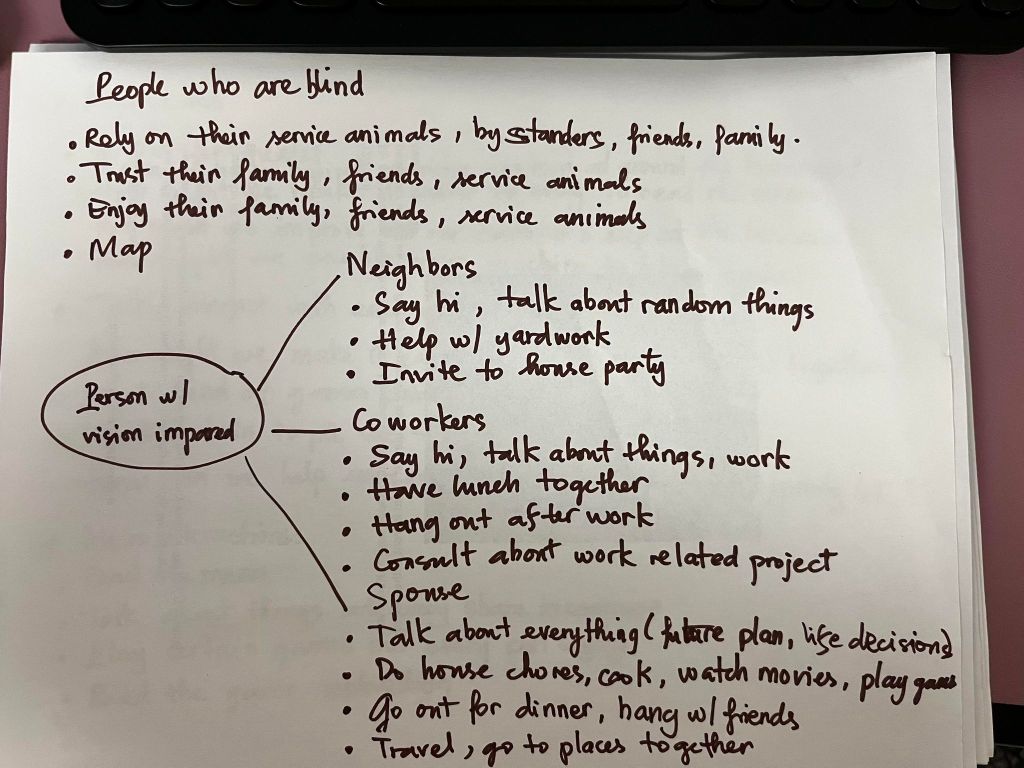 People who are blind
• Rely on their service animals, bystanders, friends, family.
• Trust their family, friends, service animals
• Enjoy their family, friends, service animals
• Map
Neighbors
• Say hi, talk about random things
• Help w/ yardwork
• Invite to house party
Person w/
vision impared
Coworkers
• Say hi, talk about things, work
• Have lunch together
• Hang out after work
• Consult about work related project
Spouse
• Talk about everything (future plan, life decisions)
• Do house chores, cook, watch movies, play games
• Go out for dinner, hang w/ friends
• Travel, go to places together